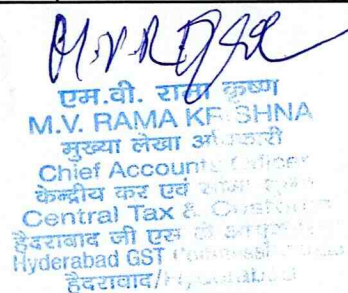 एम.वी. रामा कृष्ण
M.V. RAMA KRISHNA
मुख्या लेखा अधिकारी
Chief Accounts Officer
केन्द्रीय कर एवं सीमा शुल्क
Central Tax & Customs
हैदराबाद जी एस टी आयुक्तालय
Hyderabad GST Commissionerate
हैदराबाद/Hyderabad